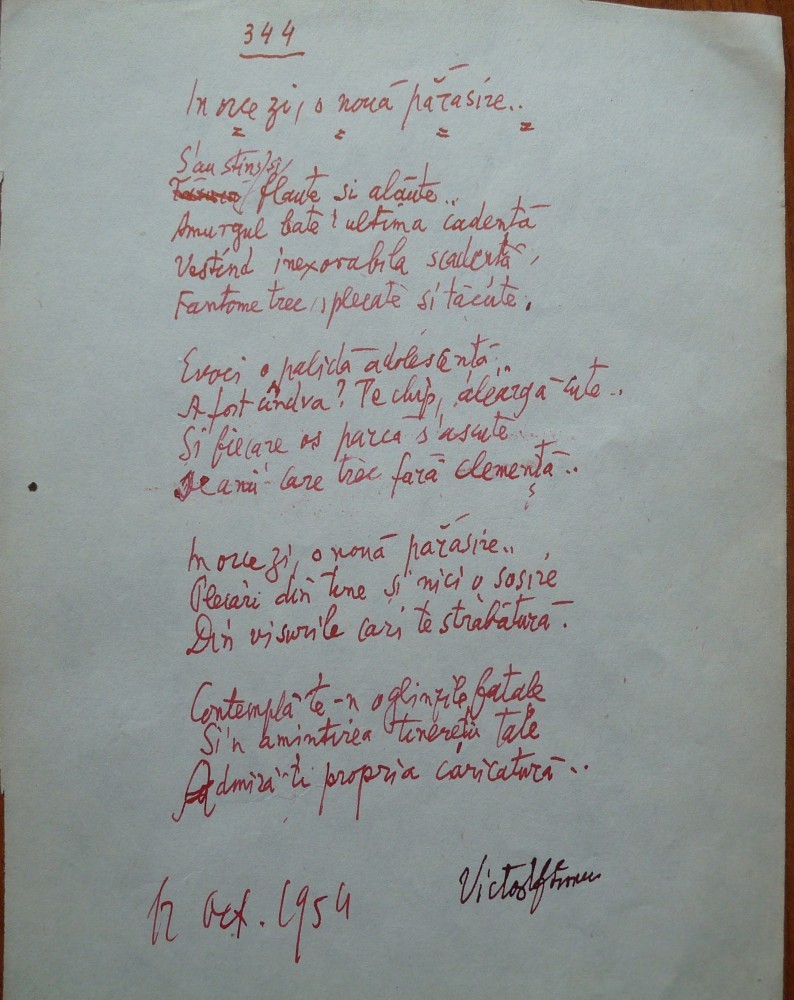 344
In orce zi, o nouă părăsire..
S'au stins și
flaute si alăute..
Amurgul bate ultima cadență
Vestind inexorabila scadență,
Fantome trec, plecate și tăcute.
Evoci o palidă adolescență..
A fost cîndva? Pe chip, aleargă cute..
Și fiecare os parcă s'ascute
De anii care trec fără clemență..
In orce zi, o nouă părăsire..
Plecări din tine și nici o sosire
Din visurile cari te străbătură.
Contemplă-te-n oglinzile fatale
Și'n amintirea tinereții tale
Admiră-ți propria caricatură..
12 Oct. 1954
Victor Eftimiu